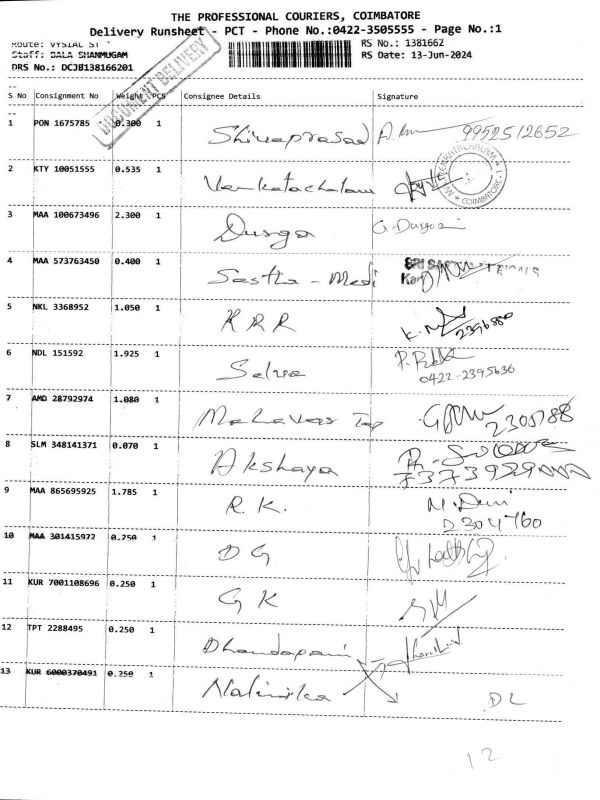 THE PROFESSIONAL COURIERS, COIMBATORE
Delivery Runsheet - PCT - Phone No.:0422-3505555 - Page No.:1
Route: VYSIAL ST
RS No.: 1381662
Staff: BALA SHANMUGAM
RS Date: 13-Jun-2024
DRS No.: DCJB138166201
DOCUMENT DELIVERY
S No Consignment No Weight PCS Consignee Details Signature
1 PON 1675785 0.300 1 Shivaprasad 9952512652
2 KTY 10051555 0.535 1 Venkatachalam
COIMBATORE
3 MAA 100673496 2.300 1 Durga G. Durga
4 MAA 573763450 0.400 1 Sastha - Medi
5 NKL 3368952 1.050 1 KRR 2396880
6 NDL 151592 1.925 1 Selva
0422-2395636
7 AMD 28792974 1.080 1 Mahaveer 2305788
8 SLM 348141371 0.070 1 Akshaya
9 MAA 865695925 1.785 1 R K. M. Devi
2304760
10 MAA 301415972 0.250 1 D G
11 KUR 7001108696 0.250 1 G K
12 TPT 2288495 0.250 1 Dhandapani
13 KUR 6000370491 0.250 1 Nalinika DL
12